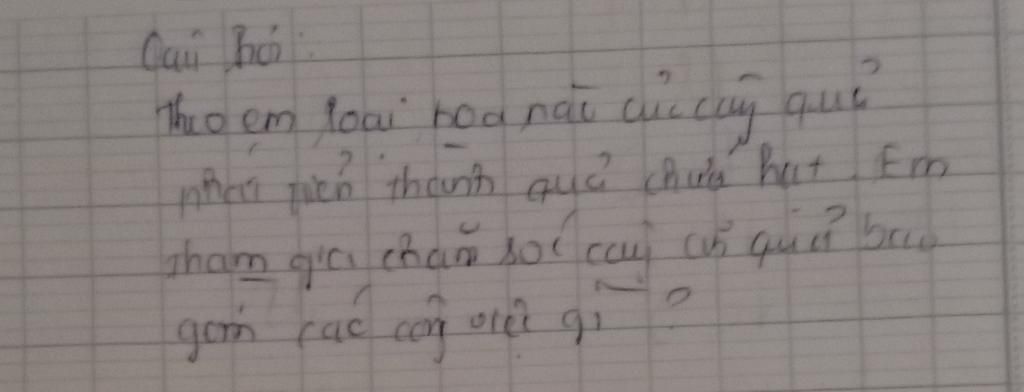 Câu hỏi:
Theo em loài hoa nào của cây quả
phát triển thành quả chứa hạt Em
tham gia chăm sóc cây ăn quả bao
gồm các công việc gì ?